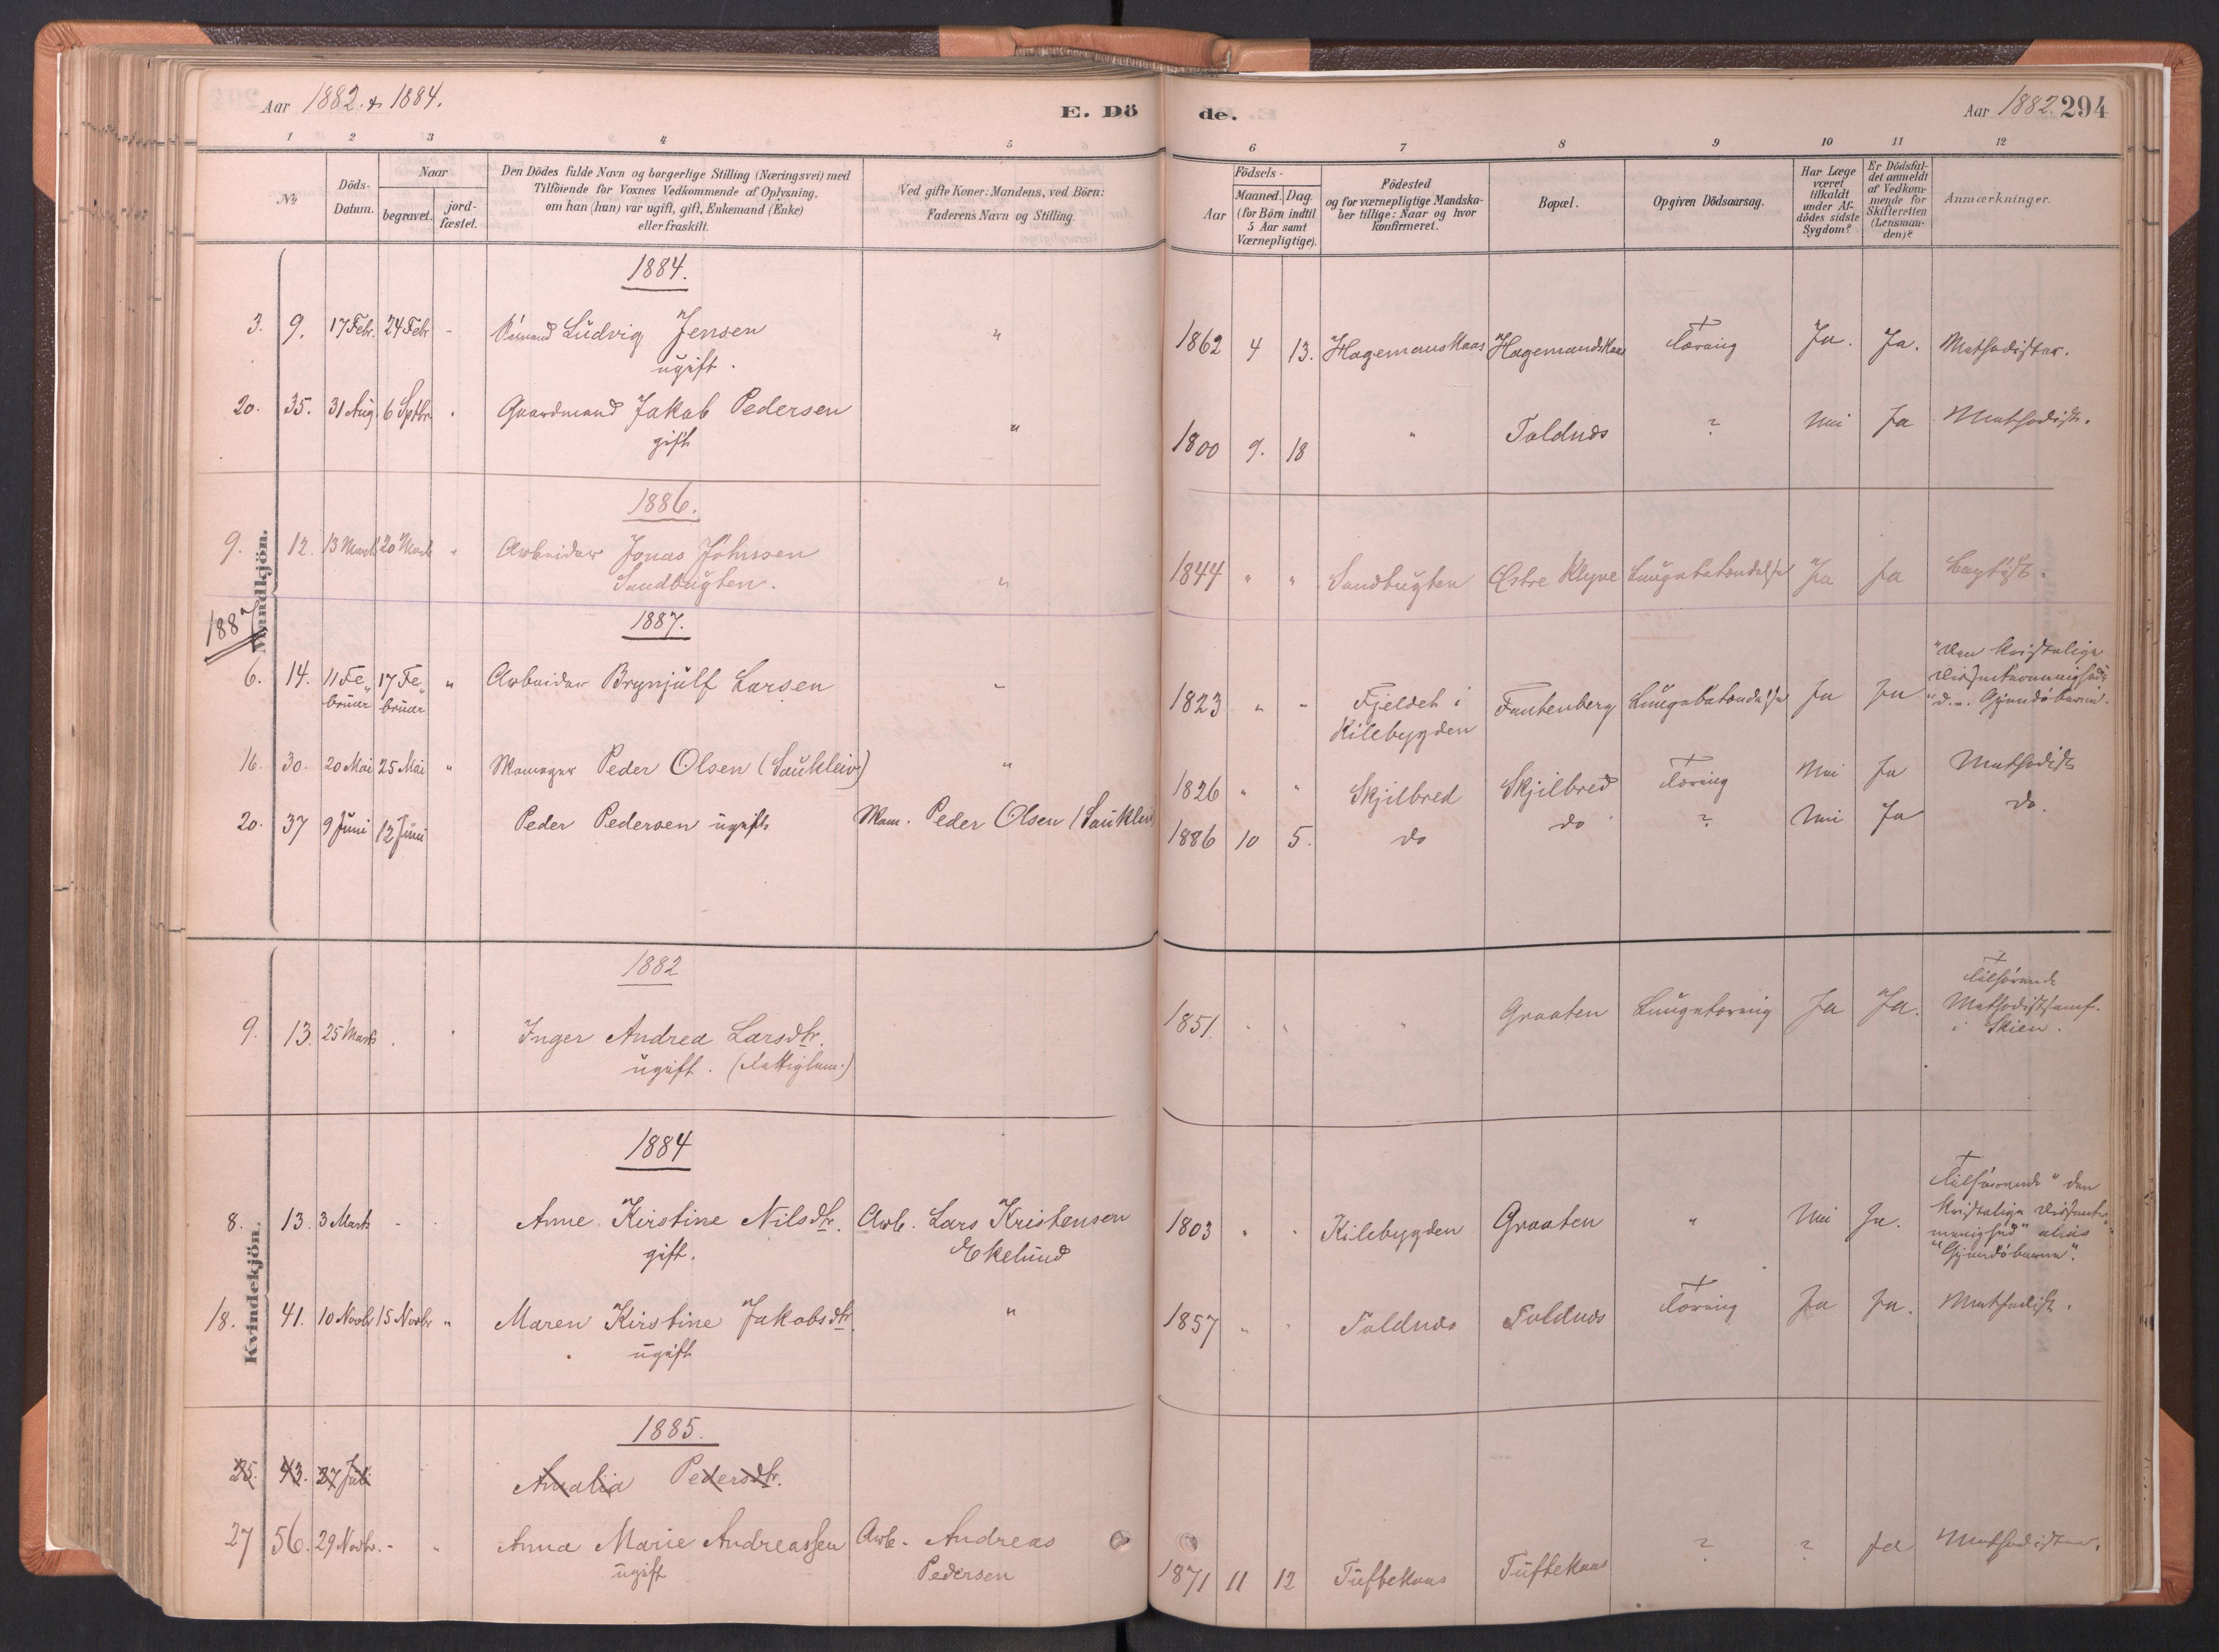 Aar 1882 & 1884.
E. Dö
de.
Aar 1882. 294
1 2 3 4 5
6 7 8 9 10 11 12
No
Döds-
Datum.
Naar
begravet.
jord-
fæstet.
Den Dödes fulde Navn og borgerlige Stilling (Næringsvei) med
Tilföiende for Voxnes Vedkommende af Oplysning,
om han (hun) var ugift, gift, Enkemand (Enke)
eller fraskilt.
Ved gifte Koner: Mandens, ved Börn:
Faderens Navn og Stilling.
Födsels-
Aar
Maaned. Dag.
(for Börn indtil
5 Aar samt
Værnepligtige).
Födested
og for værnepligtige Mandska-
ber tillige: Naar og hvor
konfirmeret.
Bopæl.
Opgiven Dödsaarsag.
Har Læge
været
tilkaldt
under Af-
dödes sidste
Sygdom?
Er Dödsfal-
det anmeldt
af Vedkom-
mende for
Skifteretten
(Lensman-
den)?
Anmærkninger.
Mandkjön.
1884.
3. 9. 17 Febr. 24 Febr - Ludvig Jensen " 1862 4 13. Hagemanskaas Hagemandskaas Tæring Ja. Ja. Methodister.
ugift.
20. 35. 31 Aug 6 Septbr. " Gaardmand Jakob Pedersen " 1800 9. 18 " Toldnes ? Nei Ja Methodist.
gift
1886.
9. 12. 13 Marts 20 Marts " Arbeider Jonas Johnsen
Sandbugten. " 1844 " " Sandbugten Østre Klyve Lungebetændelse Ja Ja Baptist.
1887
1887.
6. 14. 11 Fe- 17 Fe- " Arbeider Brynjulf Larsen " 1823 " " Fjeldet i Fantenberg Lungebetændelse Ja Ja "Den kristelige
bruar bruar Kilebygden Dissentermenighed"
16. 30. 20 Mai 25 Mai " Peder Olsen (Saukleiv) " 1826 " " Skjilbred Skjilbred Tæring Nei Ja Methodist
20. 37 9 Juni 12 Juni Peder Pedersen ugift Peder Olsen (Saukleiv) 1886 10 5. do do ? Nei Ja do.
Kvindekjön.
1882
9. 13. 25 Marts . " Inger Andrea Larsdtr. 1851. " " " Graaten Lungetæring Ja Ja. Tilhörende
ugift. (Fattiglem.) Methodistsamf.
i Skien.
1884
8. 13. 3 Marts - " Anne Kirstine Nilsdtr. Arb. Lars Kristensen 1803 " " Kilebygden Graaten " Nei Ja. Tilhörende "den
gift. Ekelund kristelige Dissenter-
menighed" alias
18. 41. 10 Novbr 15 Novbr " Maren Kirstine Jakobsdtr. " 1857 " " Toldnes Toldnes Tæring Ja Ja. Methodist.
ugift
1885.
25. 43. 27 Juli Amalia Pedersdtr.
27 56. 29 Novbr. - " Anna Marie Andreassen Arb. Andreas 1871 11 12 Tuftekaas Tuftekaas ? ? Ja Methodister.
ugift Pedersen